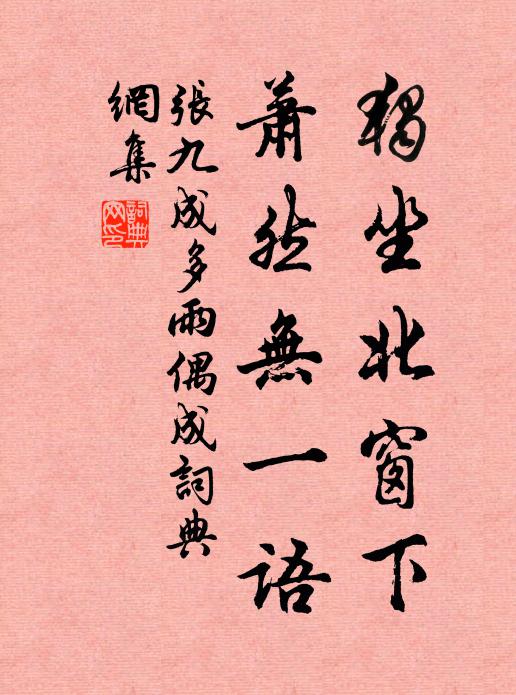 獨坐北窗下
蕭然無一語
張九成多雨偶成詞典
網集
詞典
网印